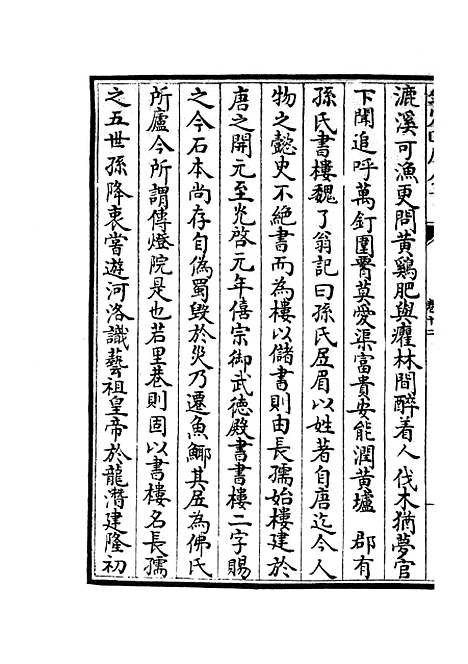 漉溪可漁更問黄鷄肥與癯林間醉着人伐木猶夢官
下闕追呼萬釘圍䯒莫愛渠富貴安能潤黄壚　郡有
孫氏書樓魏了翁記曰孫氏居眉以姓著自唐迄今人
物之懿史不絶書而為樓以儲書則由長孺始樓建於
唐之開元至光啓元年僖宗御武德殿書書樓二字賜
之今石本尚存自偽蜀毁於災乃遷魚䱹其居為佛氏
所廬今所謂傳燈院是也若里巷則固以書樓名長孺
之五世孫降衷嘗遊河洛識藝祖皇帝於龍潛建隆初